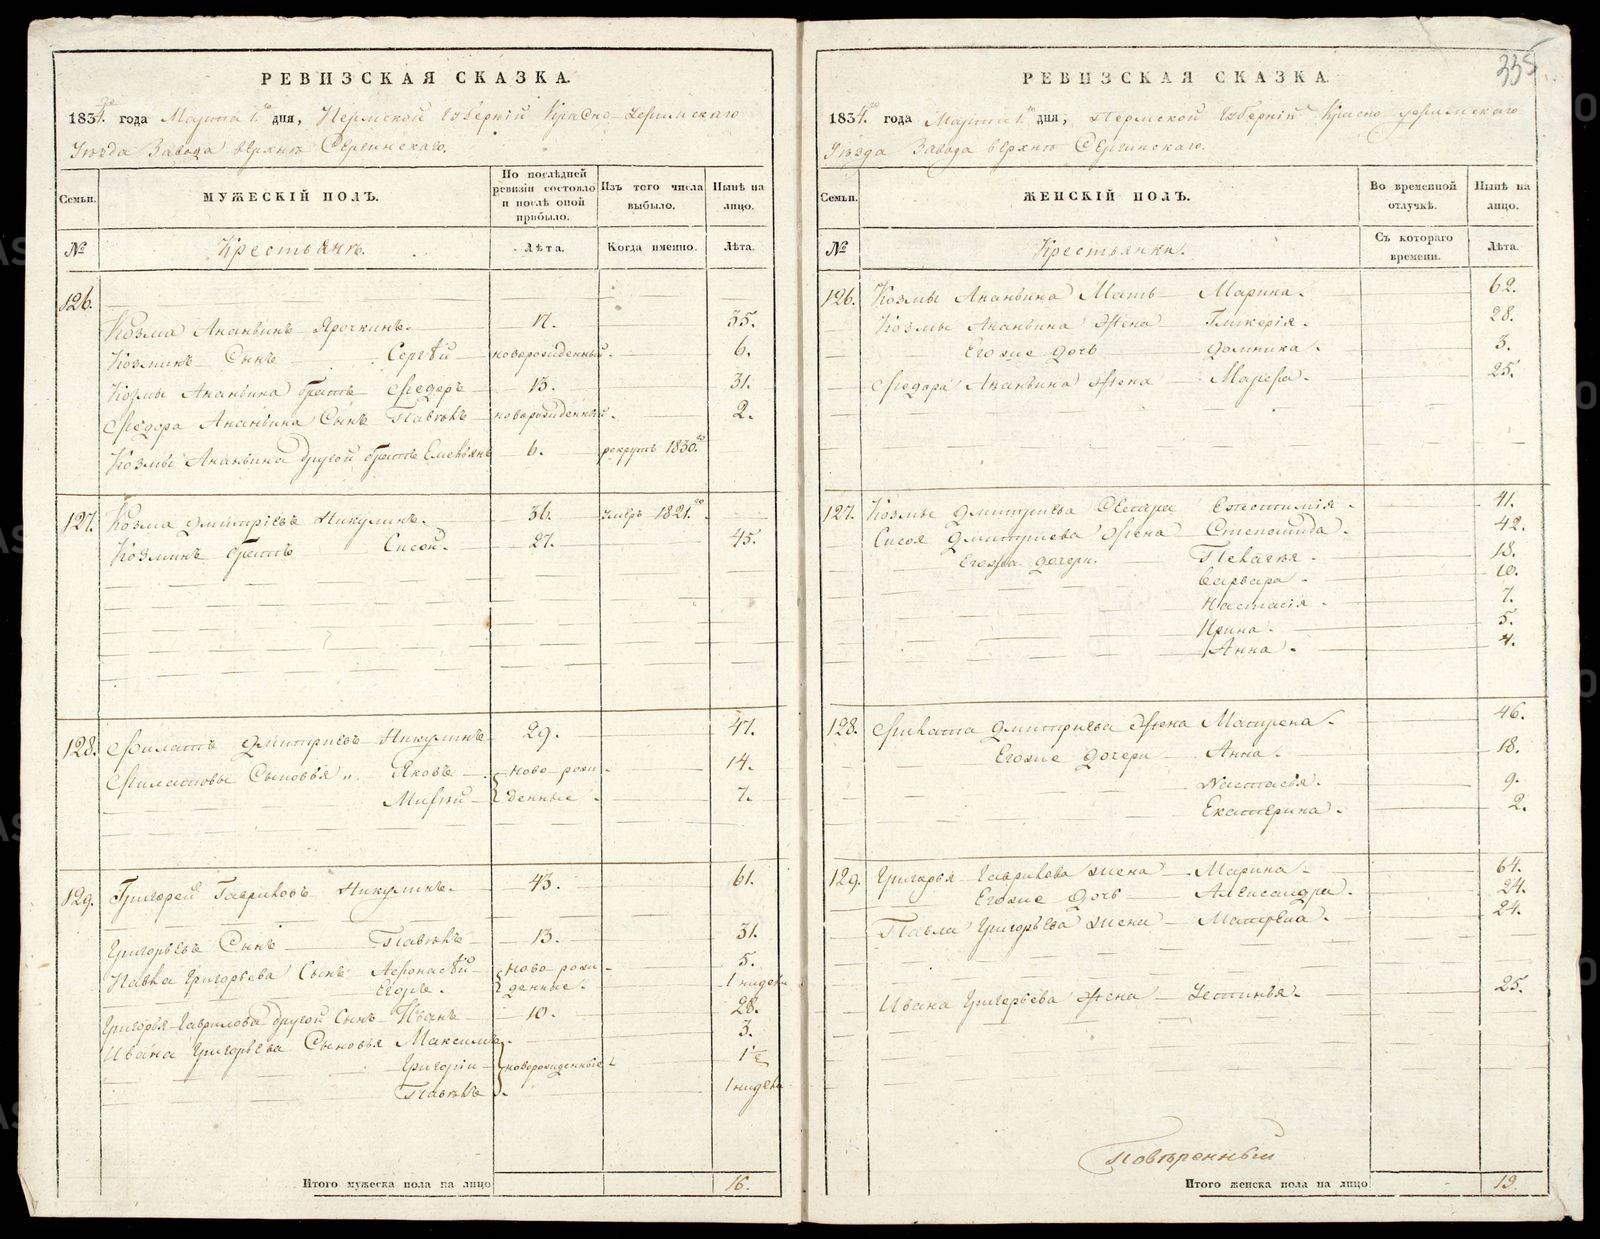 335.
РЕВИЗСКАЯ СКАЗКА.
1834го года Марта 1го дня, Пермской Губерніи Красно-уфимскаго
Уѣзда Завода верхнѣ Сергинскаго.
Семьи.
МУЖЕСКІЙ ПОЛЪ.
По послѣдней ревизіи состояло и послѣ оной прибыло.
Изъ того числа выбыло.
Нынѣ на лицо.
№
Крестьянъ.
Лѣта.
Когда именно.
Лѣта.
126.
Козма Ананьинъ Ярочкинъ. 17. 35.
Козминъ Сынъ Сергѣй новорожденный. 6.
Козмы Ананьина братъ Федоръ 13. 31.
Федора Ананьина Сынъ Павелъ новорожденный. 2.
Козмы Ананьина другой братъ Емельянъ 6. рекрутъ 1830го
127. Козма Дмитріевъ Никулинъ. 36. умеръ 1821го
Козминъ братъ Сисой. 27. 45.
128. Филатъ Дмитріевъ Никулинъ 29. 47.
Филатовы Сыновья Яковъ ново-рож- 14.
денные. 7.
129. Григорей Гавриловъ Никулинъ. 43. 61.
Григорьевъ Сынъ Павелъ 13. 31.
Павла Григорьева Сынъ Афонасѣй ново-рож- 5.
Егоръ. денные. 1 нидели
Григорья Гаврилова другой Сынъ Иванъ 10. 28.
Ивана Григорьева Сыновья Максимъ 3.
Григорій новорожденные 1½
Павелъ 1 нидели
Итого мужеска пола на лицо 16.
РЕВИЗСКАЯ СКАЗКА.
1834го года Марта 1го дня, Пермской Губерніи Красно уфимскаго
Уѣзда Завода верхнѣ Сергинскаго.
Семьи.
ЖЕНСКІЙ ПОЛЪ.
Во временной отлучкѣ.
Нынѣ на лицо.
№
Крестьянки.
Съ котораго времени.
Лѣта.
126. Козмы Ананьина Мать Марина. 62.
Козмы Ананьина Жена Гликерія. 28.
Егожъ дочь Домника. 3.
Федора Ананьина Жена Марфа. 25.
127. Козмы Дмитріева Сестра 41.
Сисоя Дмитриева Жена Степонида. 42.
Егожъ дочери. Пелагея. 18.
Варвара. 10.
Настасія. 7.
Ирина. 5.
Анна. 4.
128. Филата Дмитриева Жена Матрена. 46.
Егожъ дочери Анна. 18.
Настасья. 9.
Екатерина. 2.
129. Григорья Гаврилова жена Марина. 64.
Егожъ дочь Александра. 24.
Павла Григорьева жена Матрена. 24.
Ивана Григорьева Жена Устинья. 25.
Повѣренный
Итого женска пола на лицо 19.